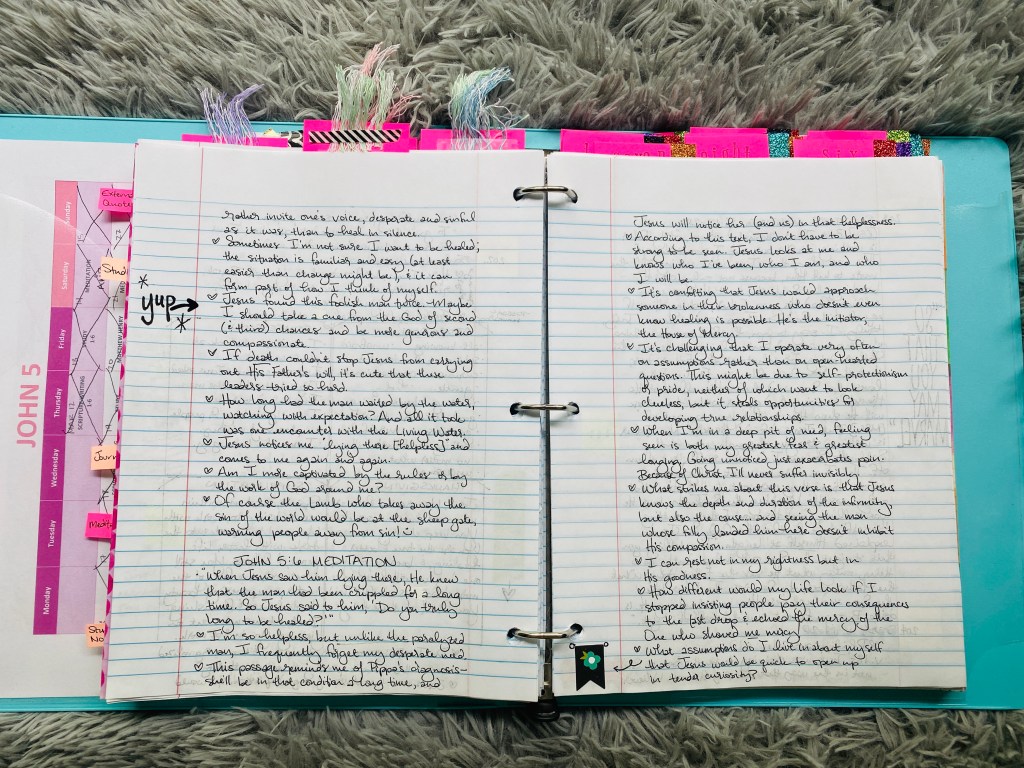 JOHN 5
Sunday
Saturday
Friday
Thursday
Wednesday
Tuesday
Monday
MEDITATION
SCRIPTURE WRITING
MATTHEW HENRY
Extern
Quote
Studi
Journ
Medita
Stu
No
*
yup→
*
rather invite one's voice, desperate and sinful
as it was, than to heal in silence.
♡ Sometimes I'm not sure I want to be healed;
the situation is familiar and easy (at least
easier than change might be) & it can
form part of how I think of myself.
♡ Jesus found this foolish man twice. Maybe
I should take a cue from the God of second
(& third) chances and be more generous and
compassionate.
♡ If death couldn't stop Jesus from carrying
out His Father's will, it's cute that these
leaders tried so hard.
♡ How long had the man waited by the water,
watching with expectation? And all it took
was one encounter with the Living Water.
♡ Jesus notices me "lying there [helpless] and
comes to me again and again.
♡ Am I more captivated by the rules or by
the work of God around me?
♡ Of course the Lamb who takes away the
sin of the world would be at the sheep gate,
warning people away from sin! :)
JOHN 5:6 MEDITATION
"When Jesus saw him lying there, He knew
that the man had been crippled for a long
time. So Jesus said to him, 'Do you truly
long to be healed?'"
♡ I'm so helpless, but unlike the paralyzed
man, I frequently forget my desperate need.
♡ This passage reminds me of Pippa's diagnosis-
she'll be in that condition a long time, and
Jesus will notice her (and us) in that helplessness.
♡ According to this text, I don't have to be
strong to be seen. Jesus looks at me and
knows who I've been, who I am, and who
I will be.
♡ It's comforting that Jesus would approach
someone in their brokenness who doesn't even
know healing is possible. He's the initiator,
the House of Mercy.
♡ It's challenging that I operate very often
on assumptions rather than on open-hearted
questions. This might be due to self-protectionism
or pride, neither of which want to look
clueless, but it steals opportunities for
developing true relationships.
♡ When I'm in a deep pit of need, feeling
seen is both my greatest fear & greatest
longing. Going unnoticed just exacerbates pain.
Because of Christ, I'll never suffer invisibly.
♡ What strikes me about this verse is that Jesus
knows the depth and duration of the infirmity,
but also the cause... and seeing the man
whose folly landed him here doesn't inhibit
His compassion.
♡ I can rest not in my rightness but in
His goodness.
♡ How different would my life look if I
stopped insisting people pay their consequences
to the last drop & echoed the mercy of the
One who showed me mercy
♡ What assumptions do I live in about myself
that Jesus would be quick to open up
in tender curiosity?